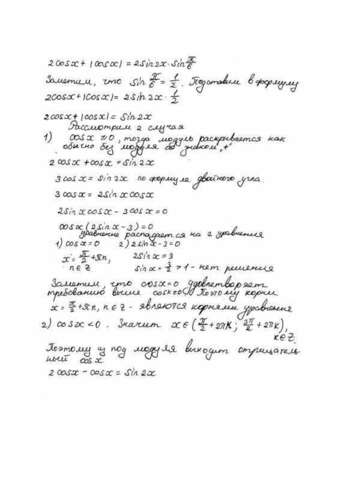 2cosx + |cosx| = 2sin2x · sin π/6
Заметим, что sin π/6 = 1/2. Подставим в формулу
2cosx + |cosx| = 2sin2x · 1/2
2cosx + |cosx| = sin2x
Рассмотрим 2 случая
1) cosx ≥ 0, тогда модуль раскрывается как
обычно без модуля со знаком „+"
2cosx + cosx = sin2x
3cosx = sin2x по формуле двойного угла
3cosx = 2sinx cosx
2sinx cosx - 3cosx = 0
cosx(2sinx - 3) = 0
уравнение распадается на 2 уравнения
1) cosx = 0 2) 2sinx - 3 = 0
x = π/2 + πn, 2sinx = 3
n∈Z sinx = 3/2 > 1 - нет решения
Заметим, что cosx = 0 удовлетворяет
требованию выше Поэтому корни
x = π/2 + πn, n∈Z - являются корнями уравнения
2) cosx < 0. Значит x∈(π/2 + 2πk; 3π/2 + 2πk),
k∈Z.
Поэтому из под модуля выходит отрицатель
ный cosx
2cosx - cosx = sin2x